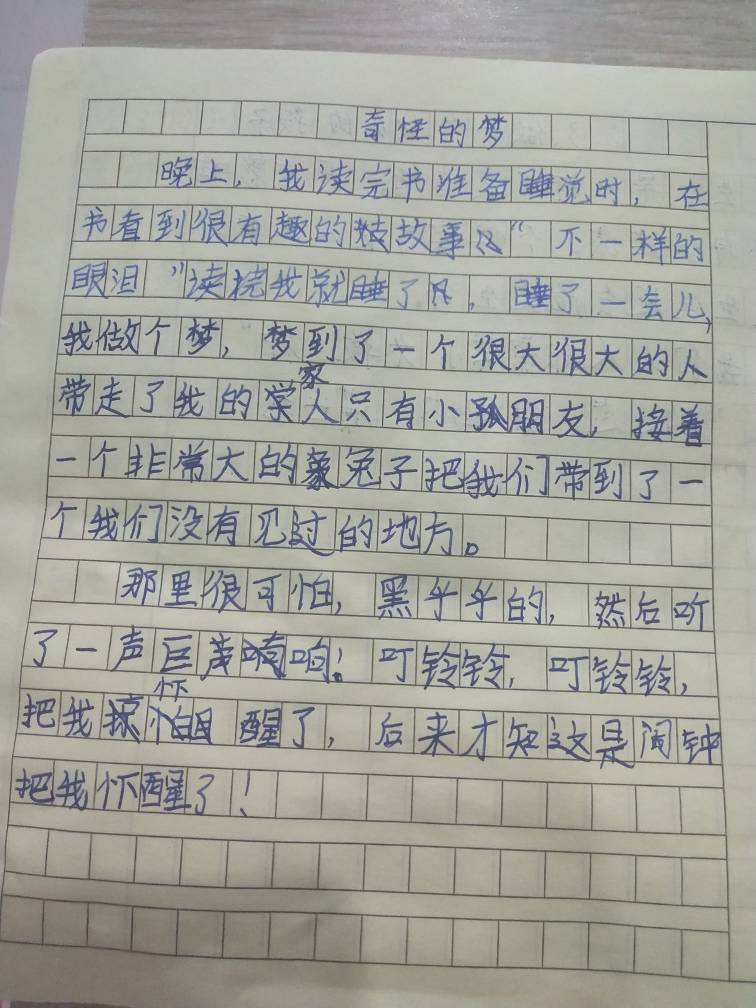 奇怪的梦
晚上，我读完书准备睡觉时，在
书看到很有趣的故事"不一样的
眼泪"读挠我就睡了，睡了一会儿，
我做个梦，梦到了一个很大很大的人
带走了我的学家人只有小朋友，接着
一个非常大的兔子把我们带到了一
个我们没有见过的地方。
那里很可怕，黑乎乎的，然后听
了一声巨响！叮铃铃，叮铃铃，
把我吓醒了，后来才知这是闹钟
把我吓醒了！